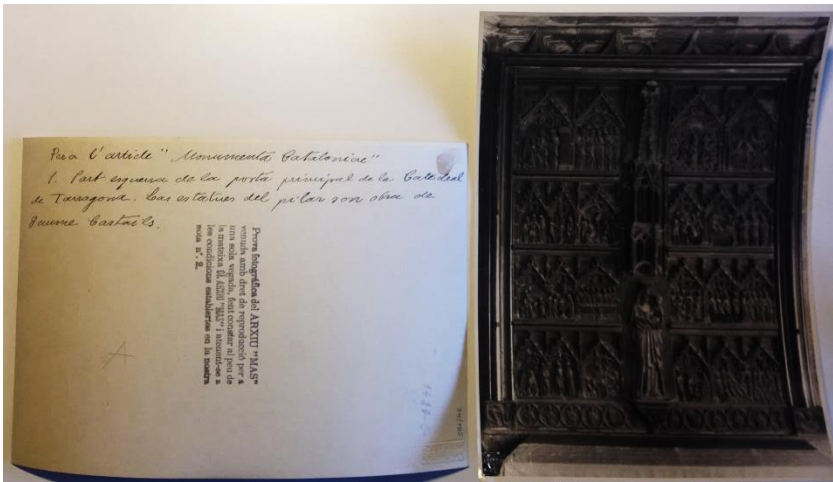 Per a l'article "Monumenta Cataloniae"
1. Part esquerra de la porta principal de la Catedral
de Tarragona. Las estatues del pilar son obra de
Jaume Castails.
Prova fotogràfica del ARXIU "MAS"
venuda amb dret de reproducció per a
una sola vegada, fent constar al peu de
la mateixa CL. ARXIU "MAS" i atenent-se a
les condicions establertes en la nostra
nota nº. 2.
A